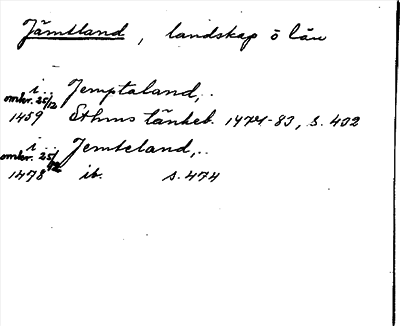 Jämtland, landskap o län
i... Jemptaland,..
omkr. 25/12
1459 Sthms tänkeb. 1474-83, s. 402
i... Jemteland,..
omkr. 25/12
1478 ib. s. 474